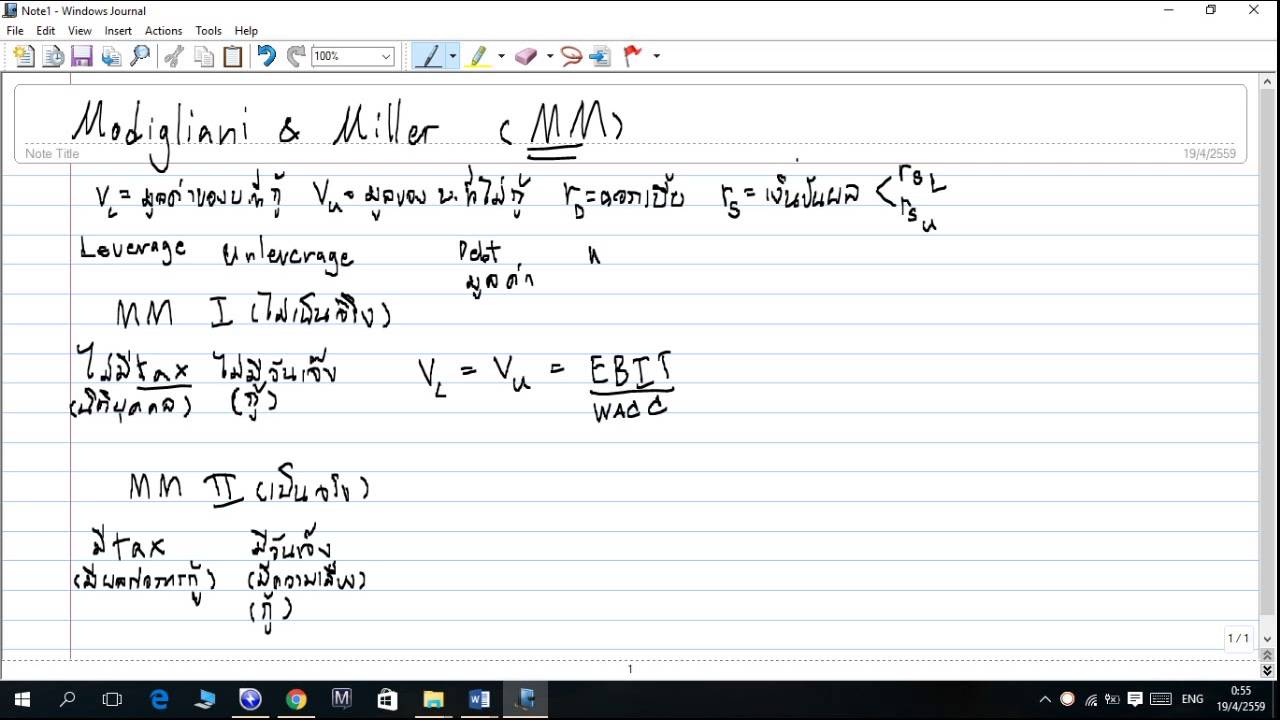 Note1 - Windows Journal
File Edit View Insert Actions Tools Help
100%
Modigliani & Miller (MM)
Note Title 19/4/2559
V_L = มูลค่าของบ.ที่กู้ V_u = มูลของ บ.ที่ไม่กู้ r_D = ดอกเบี้ย r_s = เงินปันผล < r_sL r_su
Leverage Unleverage Debt
มูลค่า
MM I (ไม่เป็นจริง)
ไม่มี tax ไม่มีวันเจ๊ง V_L = V_u = EBIT
(นิติบุคคล) (กู้) WACC
MM II (เป็นจริง)
มี tax มีวันเจ๊ง
(มีผลต่อการกู้) (มีความเสี่ยง)
(กู้)
1/1
1
ENG 0:55
19/4/2559